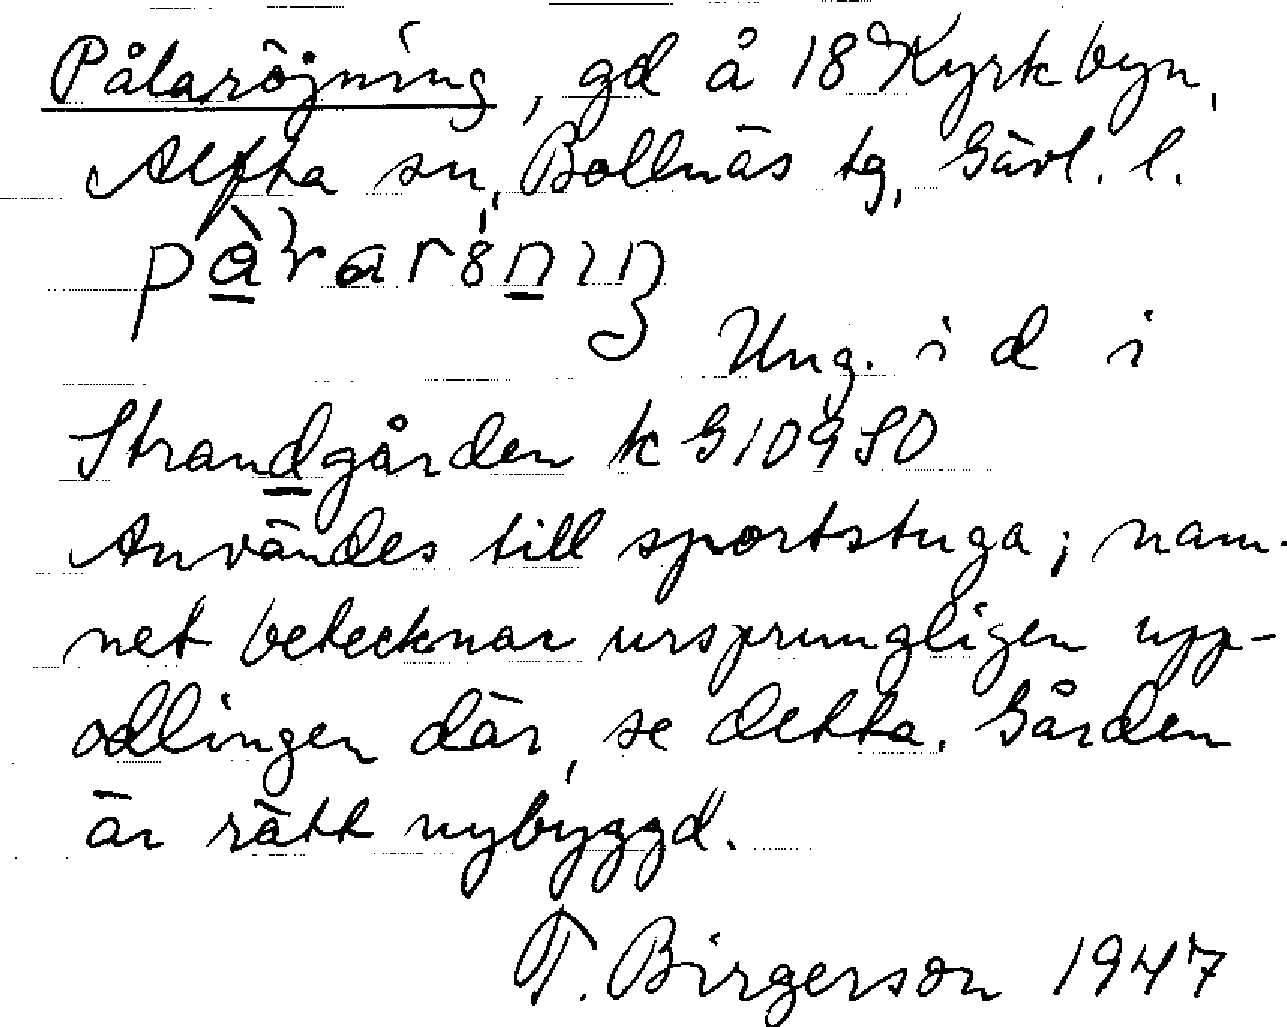 Pålaröjning, gd å 18 Kyrkbyn,
Alfta sn, Bollnäs tg, Gävl. l.
Ung. i d i
Strandgården k G 109 SO
Användes till sportstuga; nam-
net betecknar ursprungligen upp-
odlingen där, se detta. Gården
är rätt nybyggd.
T. Birgerson 1947